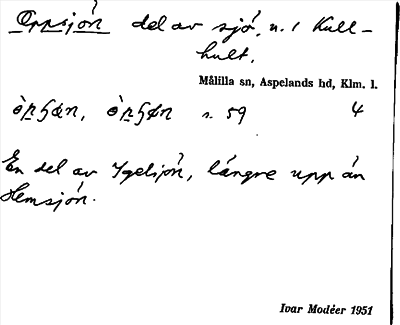 Oppsjön del av sjö, n. i Kull-
hult.
Målilla sn, Aspelands hd, Klm. l.
s. 59 4
En del av Ygelsjön, längre upp än
Hemsjön.
Ivar Modéer 1951